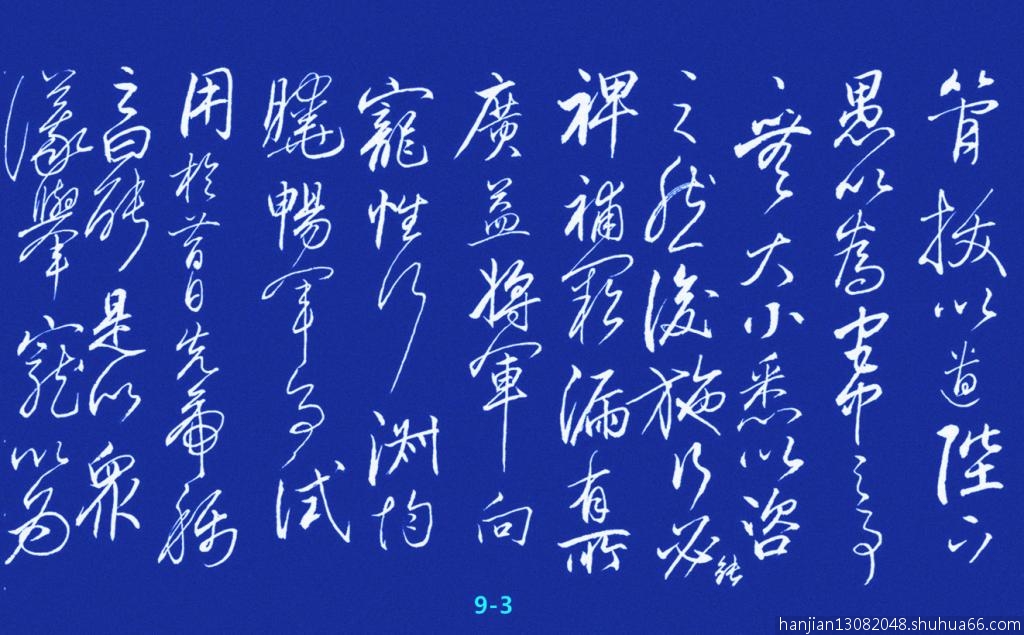 簡拔以遺陛下
愚以為宮中之事
、無大小悉以咨
之然後施行必能
裨補闕漏有所
廣益將軍向
寵性行淑均
曉暢軍事試
用於昔日先帝稱
之曰能是以眾
議舉寵以為
9-3
hanjian13082048.shuhua66.com